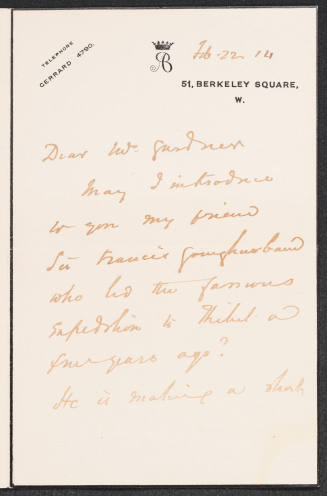 TELEPHONE
GERRARD 4790.
Feb. 22 14
51, BERKELEY SQUARE,
W.
Dear Mrs Gardner
May I introduce
to you my friend
Sir Francis Younghusband
who led the famous
Expedition to Thibet a
few years ago?
He is making a short